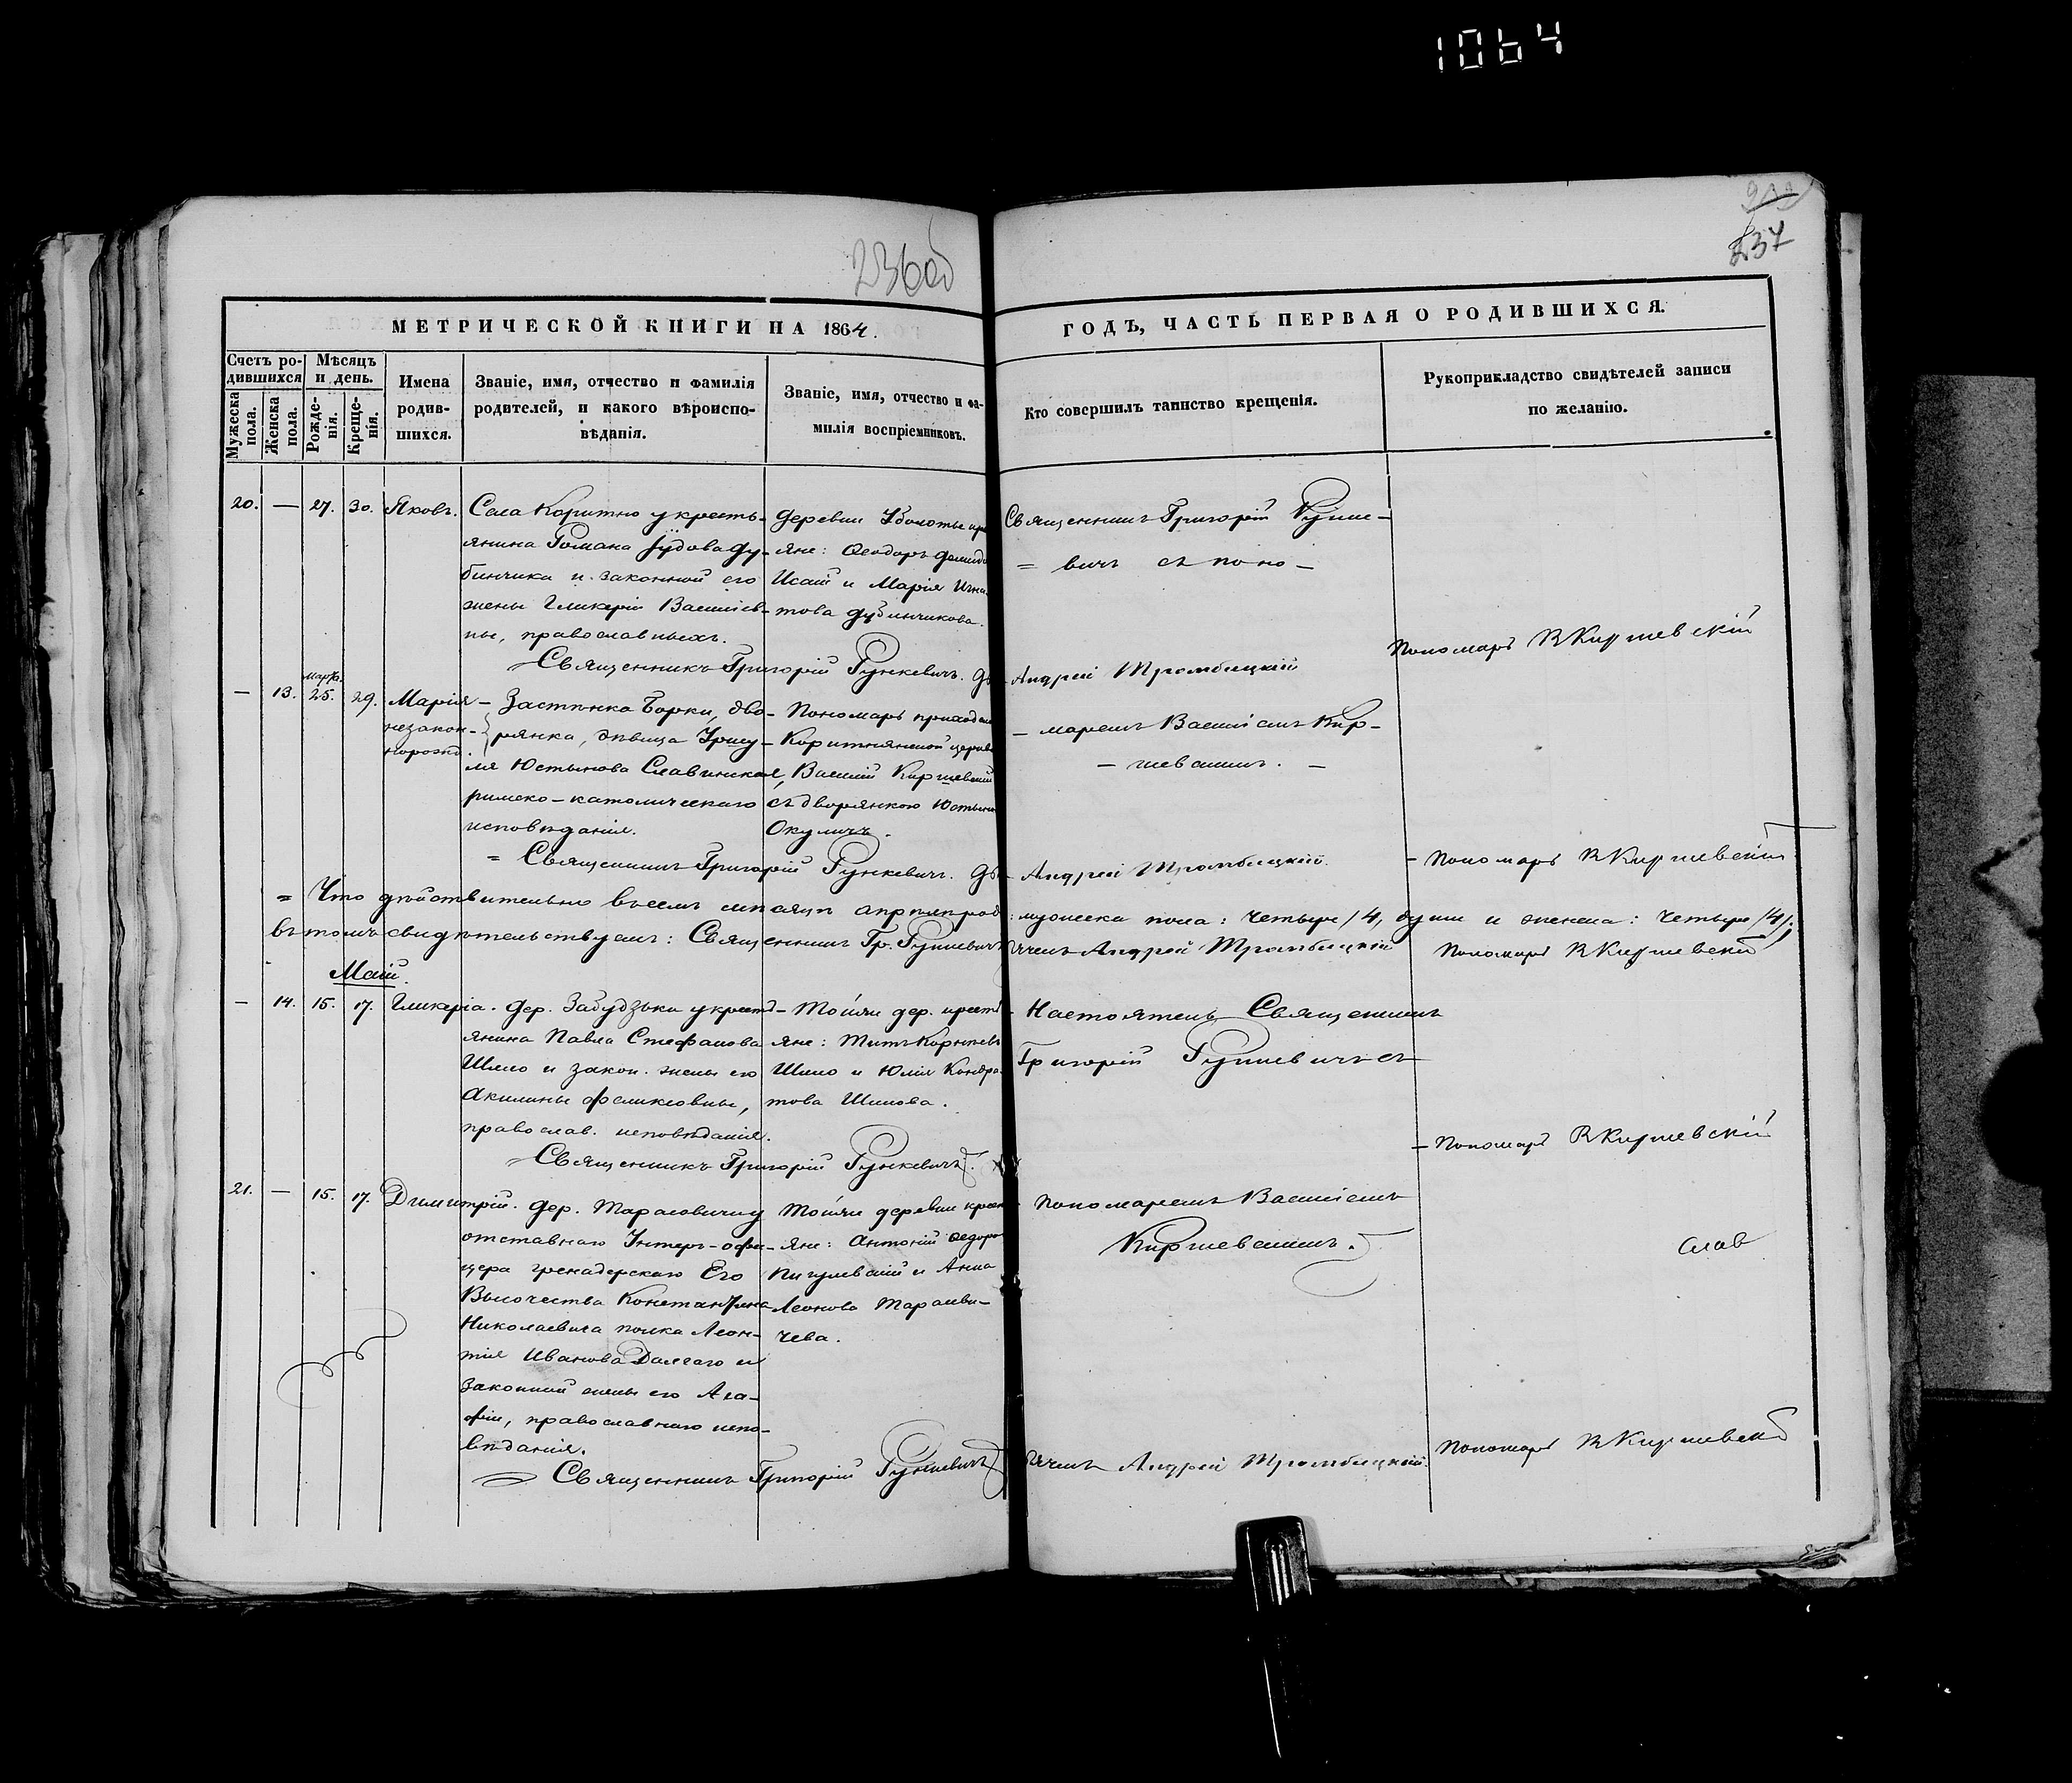 1064
236об
237
МЕТРИЧЕСКОЙ КНИГИ НА 1864.
ГОДЪ, ЧАСТЬ ПЕРВАЯ О РОДИВШИХСЯ.
Счетъ ро-
дившихся
Мужеска пола.
Женска пола.
Мѣсяцъ
и день.
Рожде-
нія.
Креще-
нія.
Имена
родив-
шихся.
Званіе, имя, отчество и фамилія
родителей, и какого вѣроиспо-
вѣданія.
Званіе, имя, отчество и фа-
милія воспріемниковъ.
Кто совершилъ таинство крещенія.
Рукоприкладство свидѣтелей записи
по желанію.
20. — 27. 30. Яковъ.
Села Коритно у кресть-
янина Романа Іудова Ду-
бинчика и законной его
жены Гликеріи Васильев-
ны, православныхъ.
Деревни Уболотье
яне: Ѳеодоръ
Исай и Марія Игна-
това Дубинчикова.
Священникъ Григорій Рунке-
= вичъ съ поно —
Священникъ Григорій Рункевичъ.
Андрей Тромбицкій
Пономарь В Киршевскій
— 13. Марта. 25. 29. Марія
незакон-
норожд.
— Застѣнка Борки, дво-
рянка, дѣвица Уршу-
ля Юстынова Славинская,
римско-католическаго
исповѣданія.
Пономарь приход
Коритнянской церкви
Василій Киршевскій
съ дворянкою Юстын
Окуличъ.
— маремъ Василіемъ Кир-
— шевскимъ. —
= Священникъ Григорій Рункевичъ.
Андрей Тромбицкій.
— Пономарь В Киршевскій
= Что дѣйствительно въ семъ мѣсяцѣ апрѣлѣ род: мужеска пола: четыре /4, души и женска: четыре /4/;
въ томъ свидѣтельствуемъ: Священникъ Гр. Рункевичъ
Андрей Тромбицкій
Пономарь В Киршевскій
Май.
— 14. 15. 17. Гликерія.
Дер. Забудзьки у крест-
янина Павла Стефанова
Шило и закон. жены его
Акилины Феликсовны,
православ. исповѣданія.
Той же дер. крест-
яне: Титъ Корнѣевъ
Шило и Юлія Кондра-
това Шилова.
Настоятель Священникъ
Григорій Рункевичъ съ
Священникъ Григорій Рункевичъ.
— Пономарь В Киршевскій
21. — 15. 17. Димитрій.
Дер. Тарасовичи у
отставнаго Унтеръ-офи-
цера гренадерскаго Его
Высочества Константина
Николаевича полка Леон-
тія Иванова Далгаго и
законной жены его Ага-
фіи, православнаго испо-
вѣданія.
Той же деревни крест
яне: Антоній Ѳедоро
Пигулевскій и Анна
Леонова Тарасеви-
чева.
Пономаремъ Василіемъ
Киршевскимъ.
слав
Священникъ Григорій Рункевичъ
Андрей Тромбицкій.
Пономарь В Киршевскій